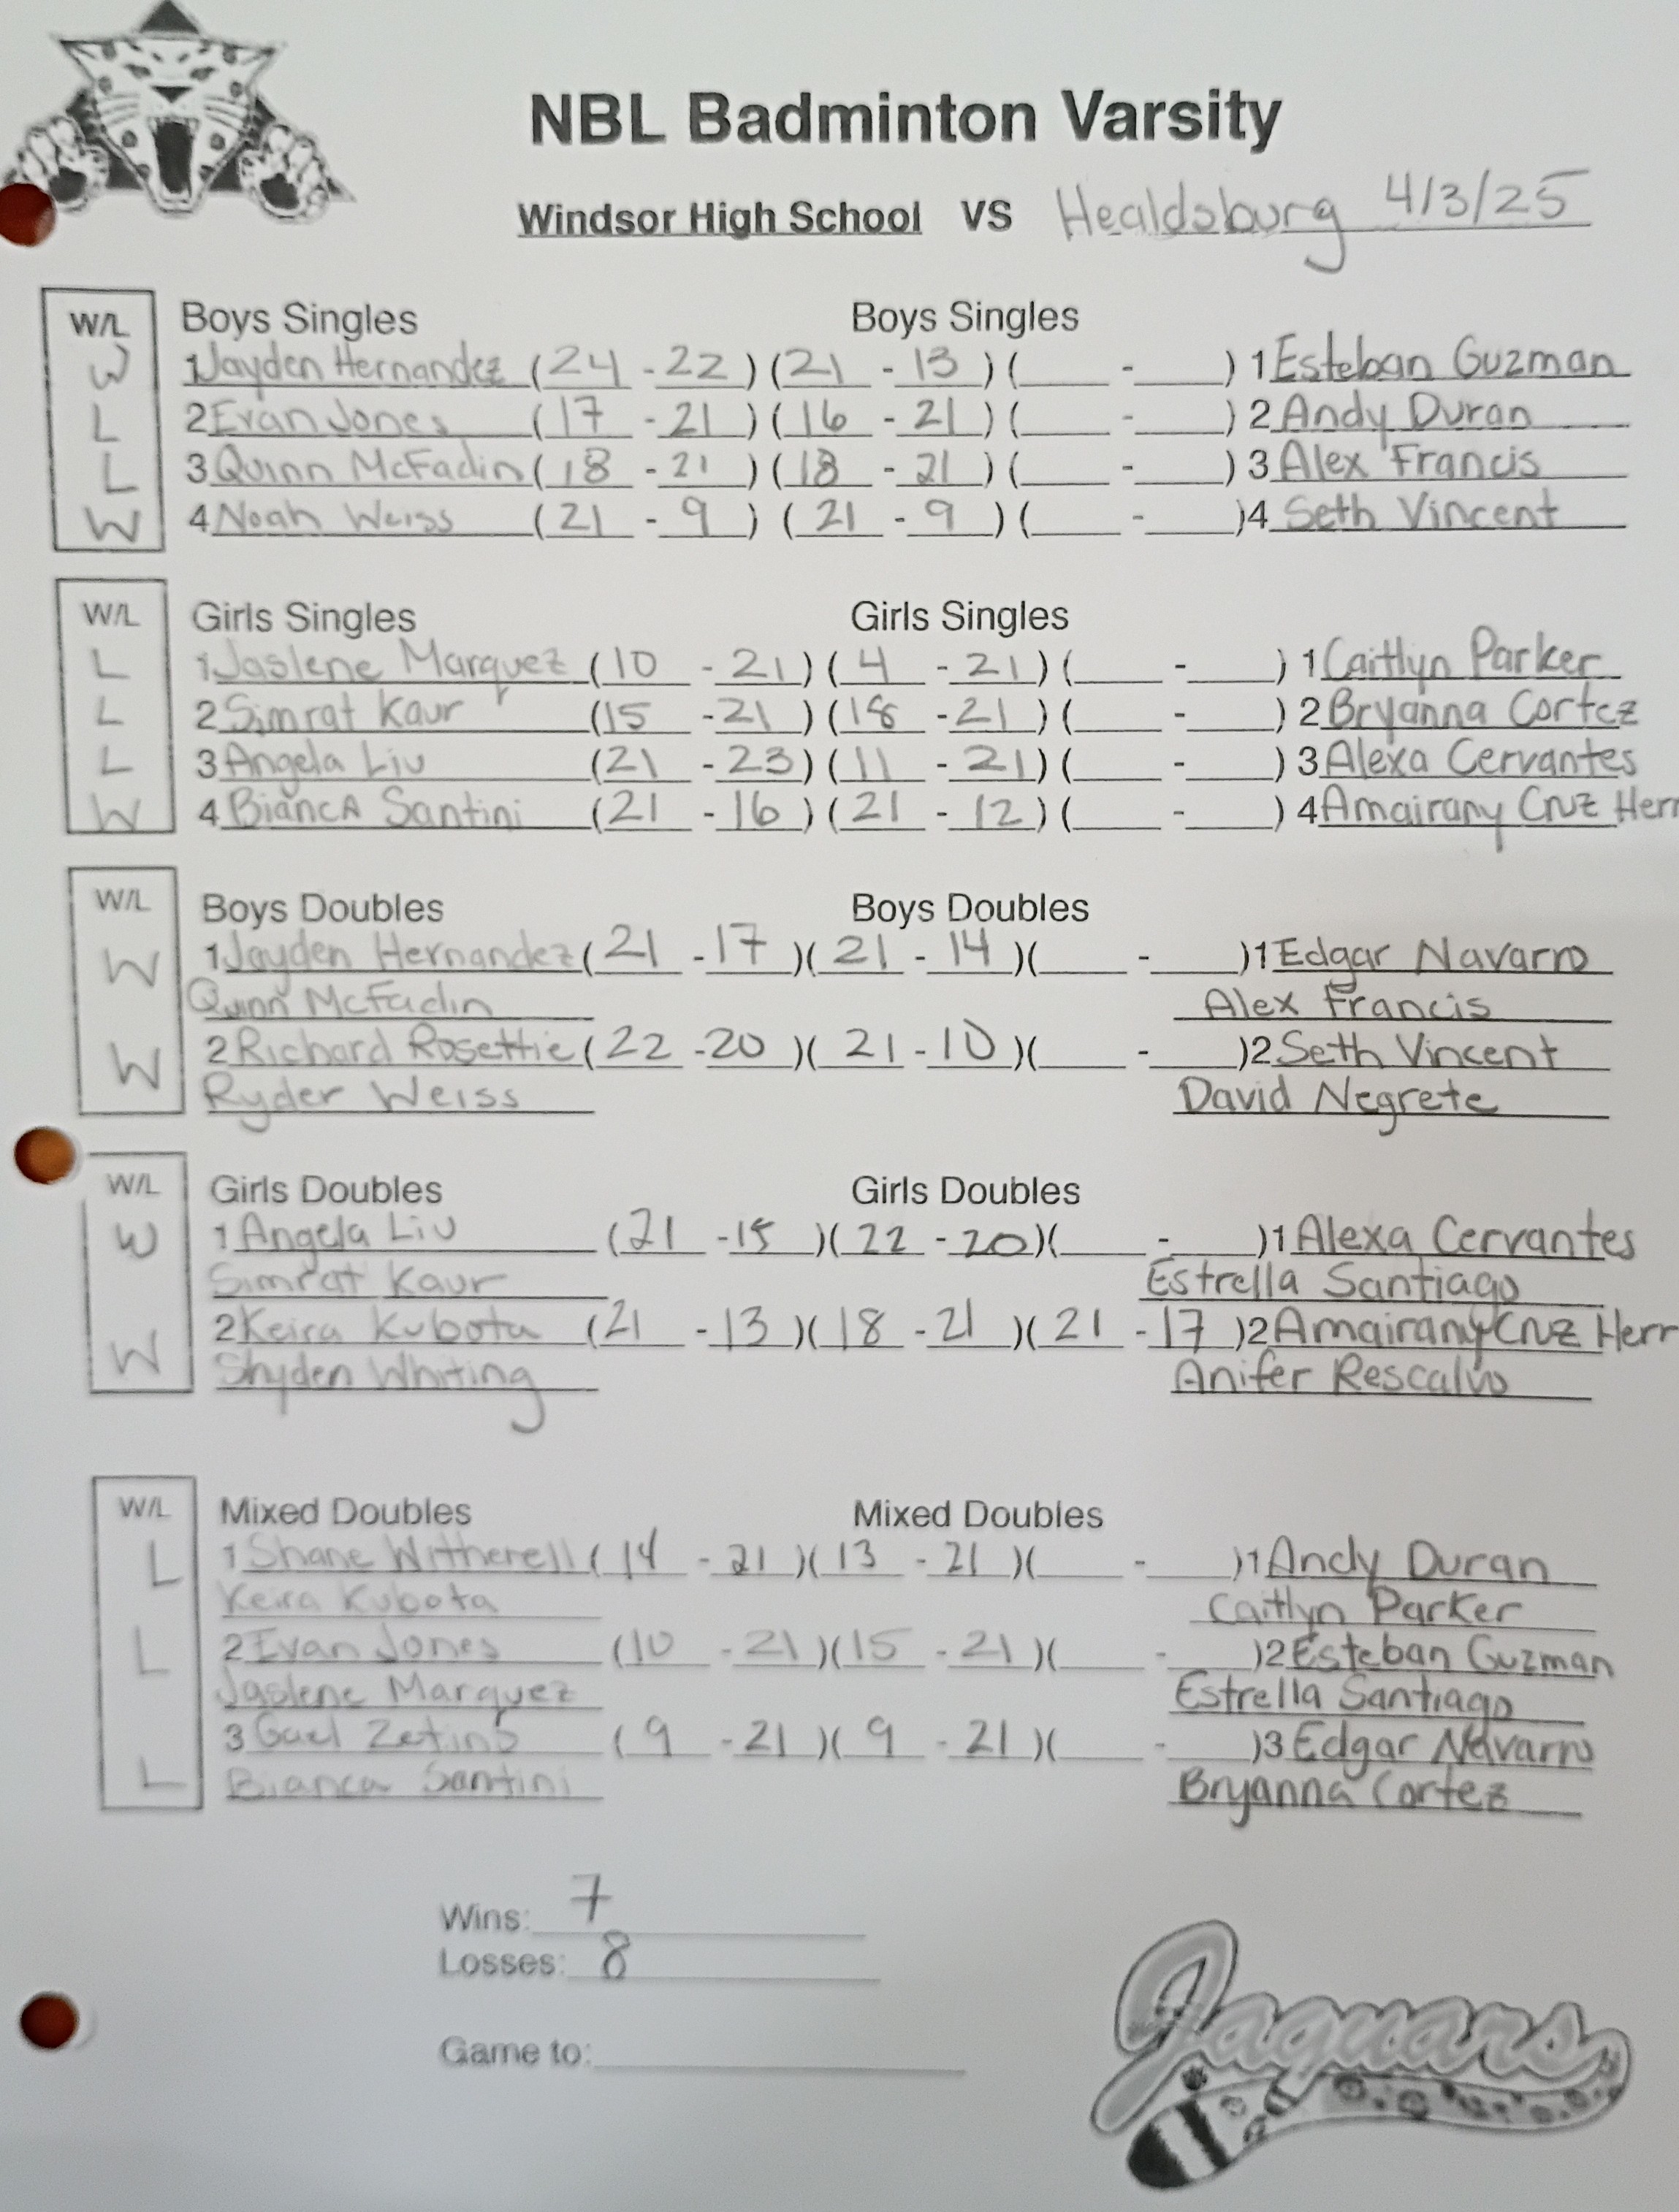 NBL Badminton Varsity
Windsor High School VS Healdsburg 4/3/25
W/L Boys Singles Boys Singles
W 1 Jayden Hernandez (24 - 22) (21 - 13) (____ - ____) 1 Esteban Guzman
L 2 Evan Jones (17 - 21) (16 - 21) (____ - ____) 2 Andy Duran
L 3 Quinn McFadin (18 - 21) (18 - 21) (____ - ____) 3 Alex Francis
W 4 Noah Weiss (21 - 9) (21 - 9) (____ - ____) 4 Seth Vincent
W/L Girls Singles Girls Singles
L 1 Jaslene Marquez (10 - 21) (4 - 21) (____ - ____) 1 Caitlyn Parker
L 2 Simrat Kaur (15 - 21) (18 - 21) (____ - ____) 2 Bryanna Cortez
L 3 Angela Liu (21 - 23) (11 - 21) (____ - ____) 3 Alexa Cervantes
W 4 Bianca Santini (21 - 16) (21 - 12) (____ - ____) 4 Amairany Cruz Herr
W/L Boys Doubles Boys Doubles
W 1 Jayden Hernandez (21 - 17) (21 - 14) (____ - ____) 1 Edgar Navarro
Quinn McFadin Alex Francis
W 2 Richard Rosettie (22 - 20) (21 - 10) (____ - ____) 2 Seth Vincent
Ryder Weiss David Negrete
W/L Girls Doubles Girls Doubles
W 1 Angela Liu (21 - 15) (22 - 20) (____ - ____) 1 Alexa Cervantes
Simrat Kaur Estrella Santiago
W 2 Keira Kubota (21 - 13) (18 - 21) (21 - 17) 2 Amairany Cruz Herr
Shyden Whiting Anifer Rescalvo
W/L Mixed Doubles Mixed Doubles
L 1 Shane Witherell (14 - 21) (13 - 21) (____ - ____) 1 Andy Duran
Keira Kubota Caitlyn Parker
L 2 Evan Jones (10 - 21) (15 - 21) (____ - ____) 2 Esteban Guzman
Jaslene Marquez Estrella Santiago
L 3 Gael Zetino (9 - 21) (9 - 21) (____ - ____) 3 Edgar Navarro
Bianca Santini Bryanna Cortez
Wins: 7
Losses: 8
Game to:
Jaguars